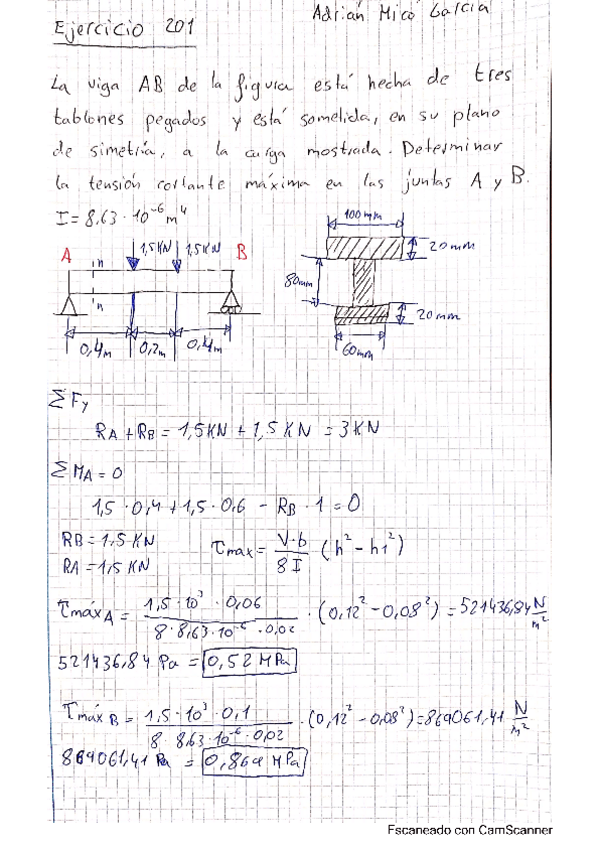 Ejercicio 201
Adrián Micó García
La viga AB de la figura está hecha de tres
tablones pegados y está sometida, en su plano
de simetría, a la carga mostrada. Determinar
la tensión cortante máxima en las juntas A y B.
I = 8,63 · 10^-6 m^4
A n 1,5 KN 1,5 KN B
n
0,4m 0,2m 0,4m
100 mm
20 mm
80mm
20 mm
60mm
ΣFy
RA + RB = 1,5 KN + 1,5 KN = 3 KN
ΣMA = 0
1,5 · 0,4 + 1,5 · 0,6 - RB · 1 = 0
RB = 1,5 KN
RA = 1,5 KN
τmax = V·b / 8 I (h² - h1²)
τmáx A = 1,5 · 10³ · 0,06 / 8 · 8,63 · 10^-6 · 0,02 · (0,12² - 0,08²) = 521436,84 N/m²
521436,84 Pa = 0,52 MPa
τmáx B = 1,5 · 10³ · 0,1 / 8 · 8,63 · 10^-6 · 0,02 · (0,12² - 0,08²) = 869061,41 N/m²
869061,41 Pa = 0,869 MPa
Escaneado con CamScanner